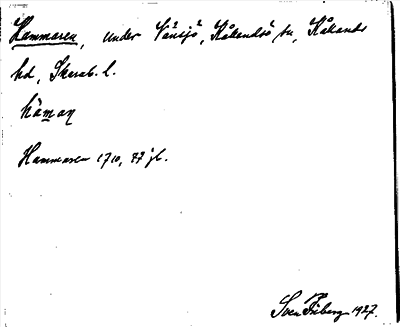 Hammaren, under Vänsjö, Kåkindsö sn, Kåkinds
hd, Skarab. l.
håman
Hammaren 1710, 77 jb.
Sven Friberg 1927.